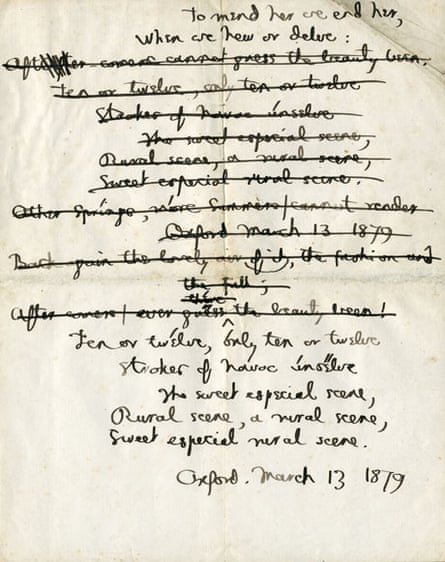 To mend her we end her,
When we hew or delve:
After comers cannot guess the beauty been.
Ten or twelve, only ten or twelve
Strokes of havoc únselve
The sweet especial scene,
Rural scene, a rural scene,
Sweet especial rural scene.
Other Springs, more Summers / cannot render
Oxford March 13 1879
Back again the lovely of it, the fashion and
the full;
there
After comers / ever guess the beauty been!
Ten or twelve, ónly ten or twelve
Strokes of hávoc únsëlve
The sweet especial scene,
Rural scene, a rural scene,
Sweet especial rural scene.
Oxford. March 13 1879